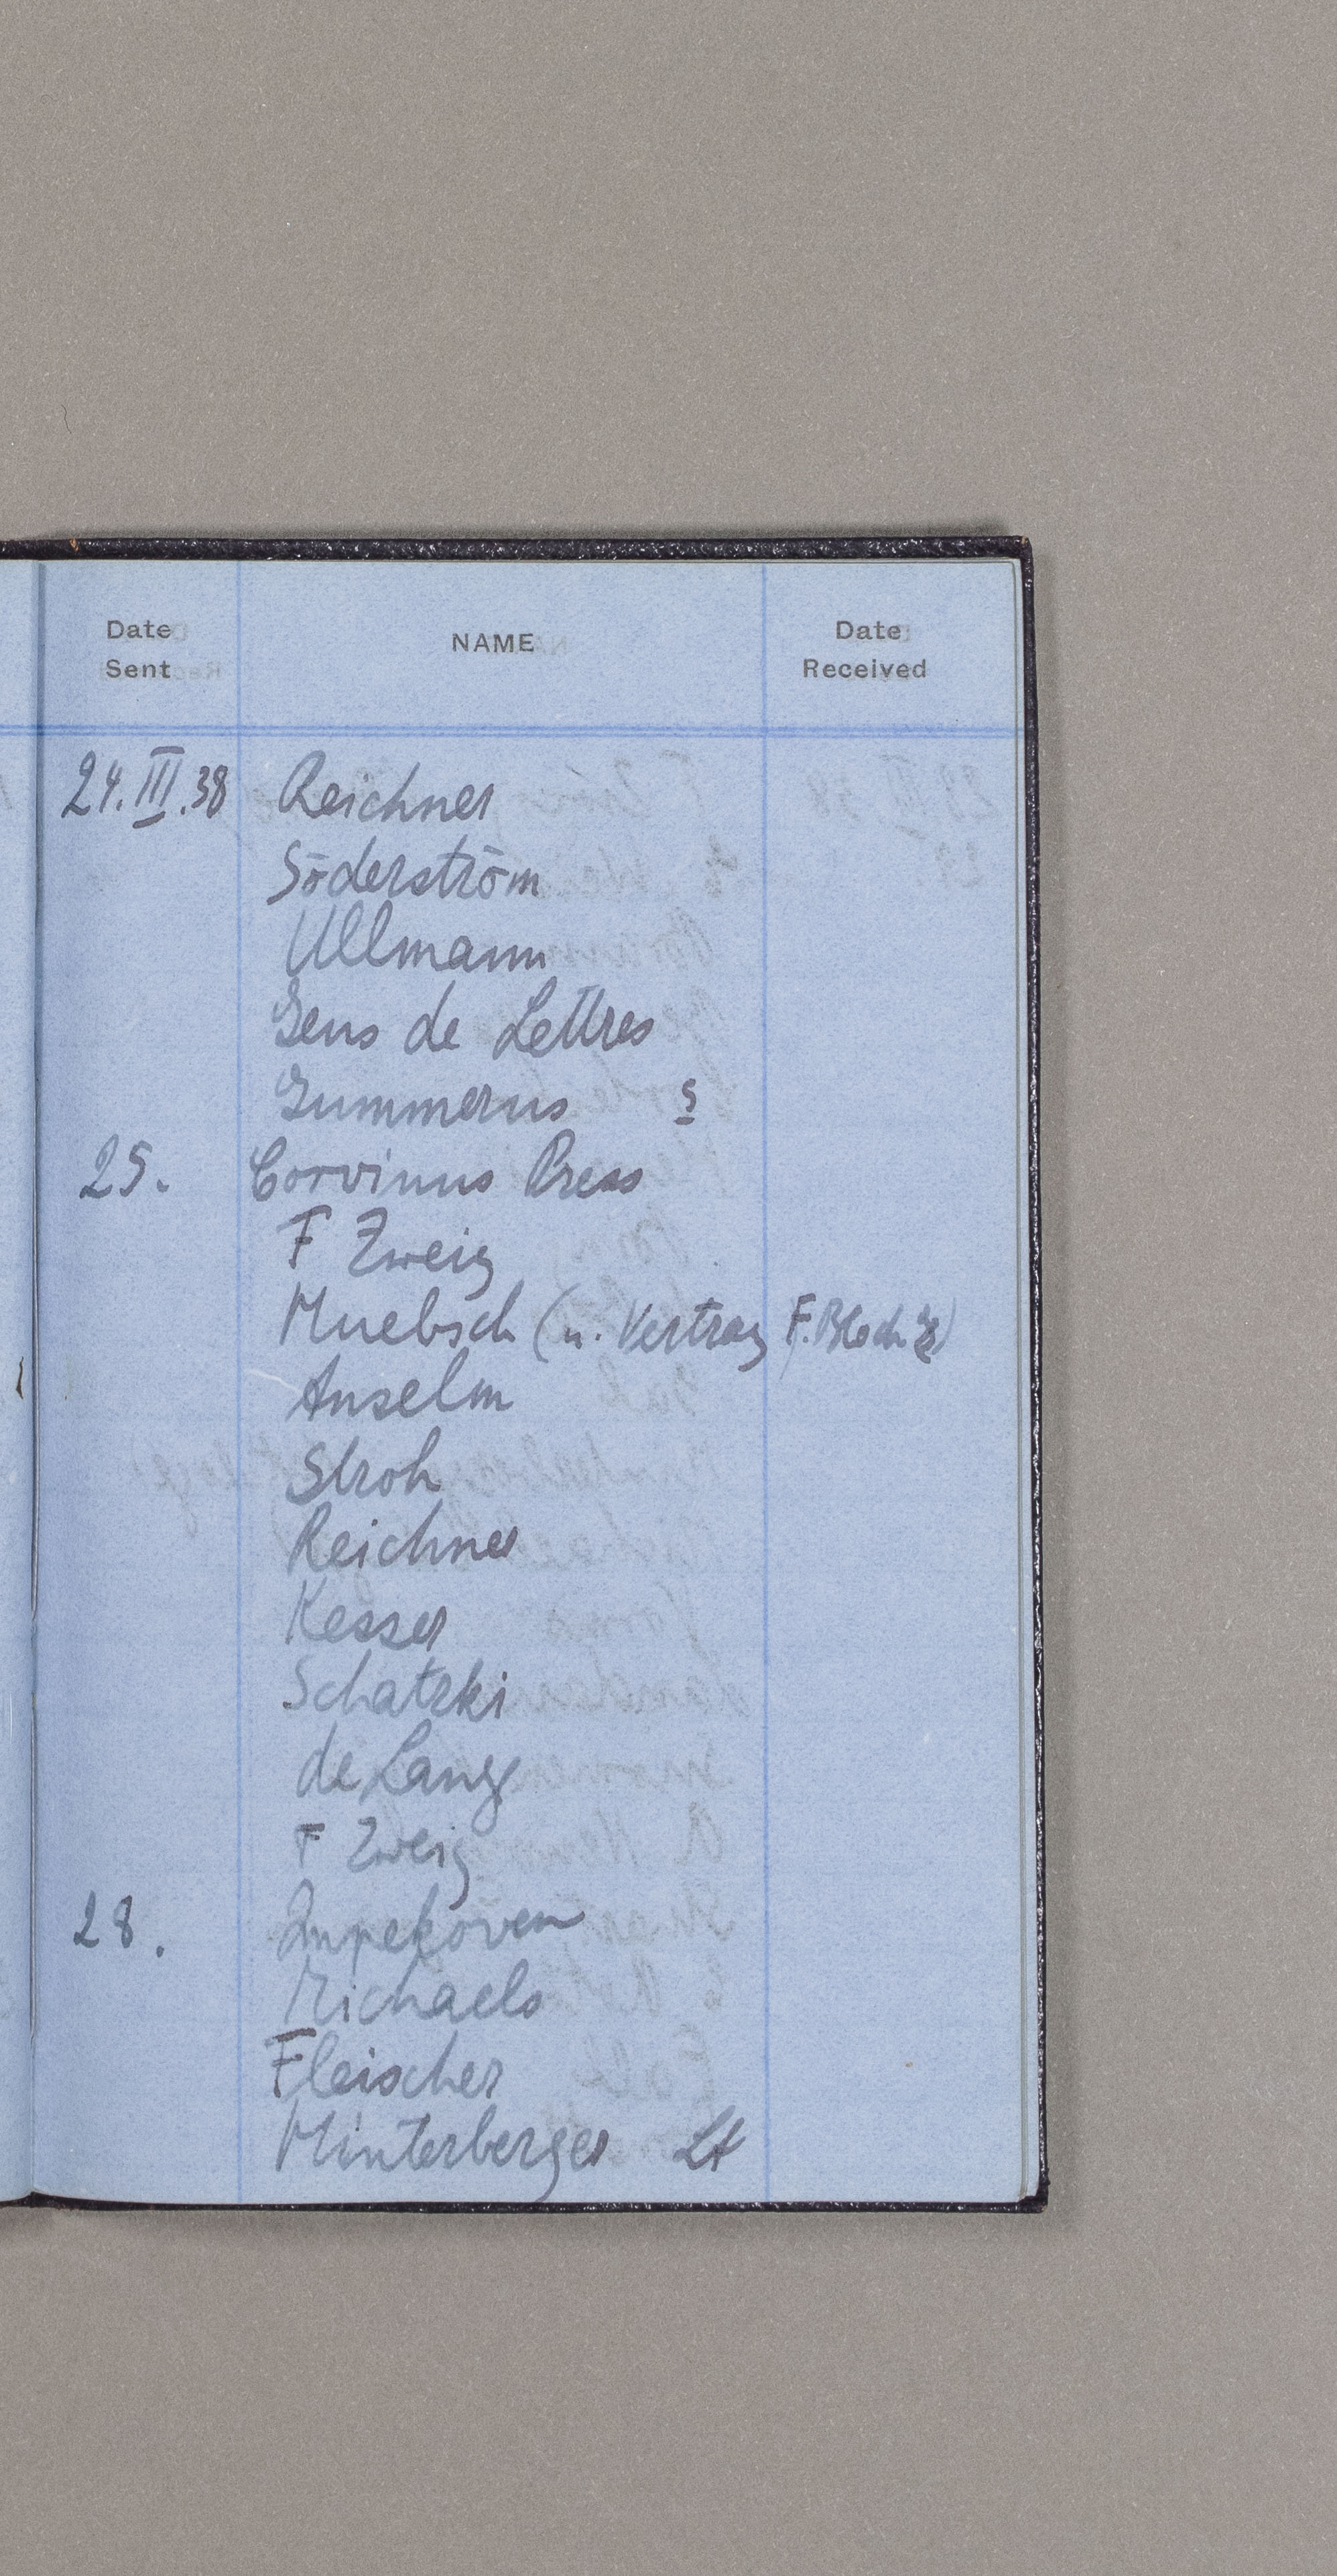 Date Sent NAME Date Received
24.III.38 Reichner
Söderström
Ullmann
Gens de Lettres
Gummerus
25. Corvinus Press
F Zweig
Huebsch (u. Vertrag F. Bloch
Anselm
Stroh
Reichner
Kesser
Schatzki
de Lange
F Zweig
28.
Michaels
Fleischer
Hinterberger Lt